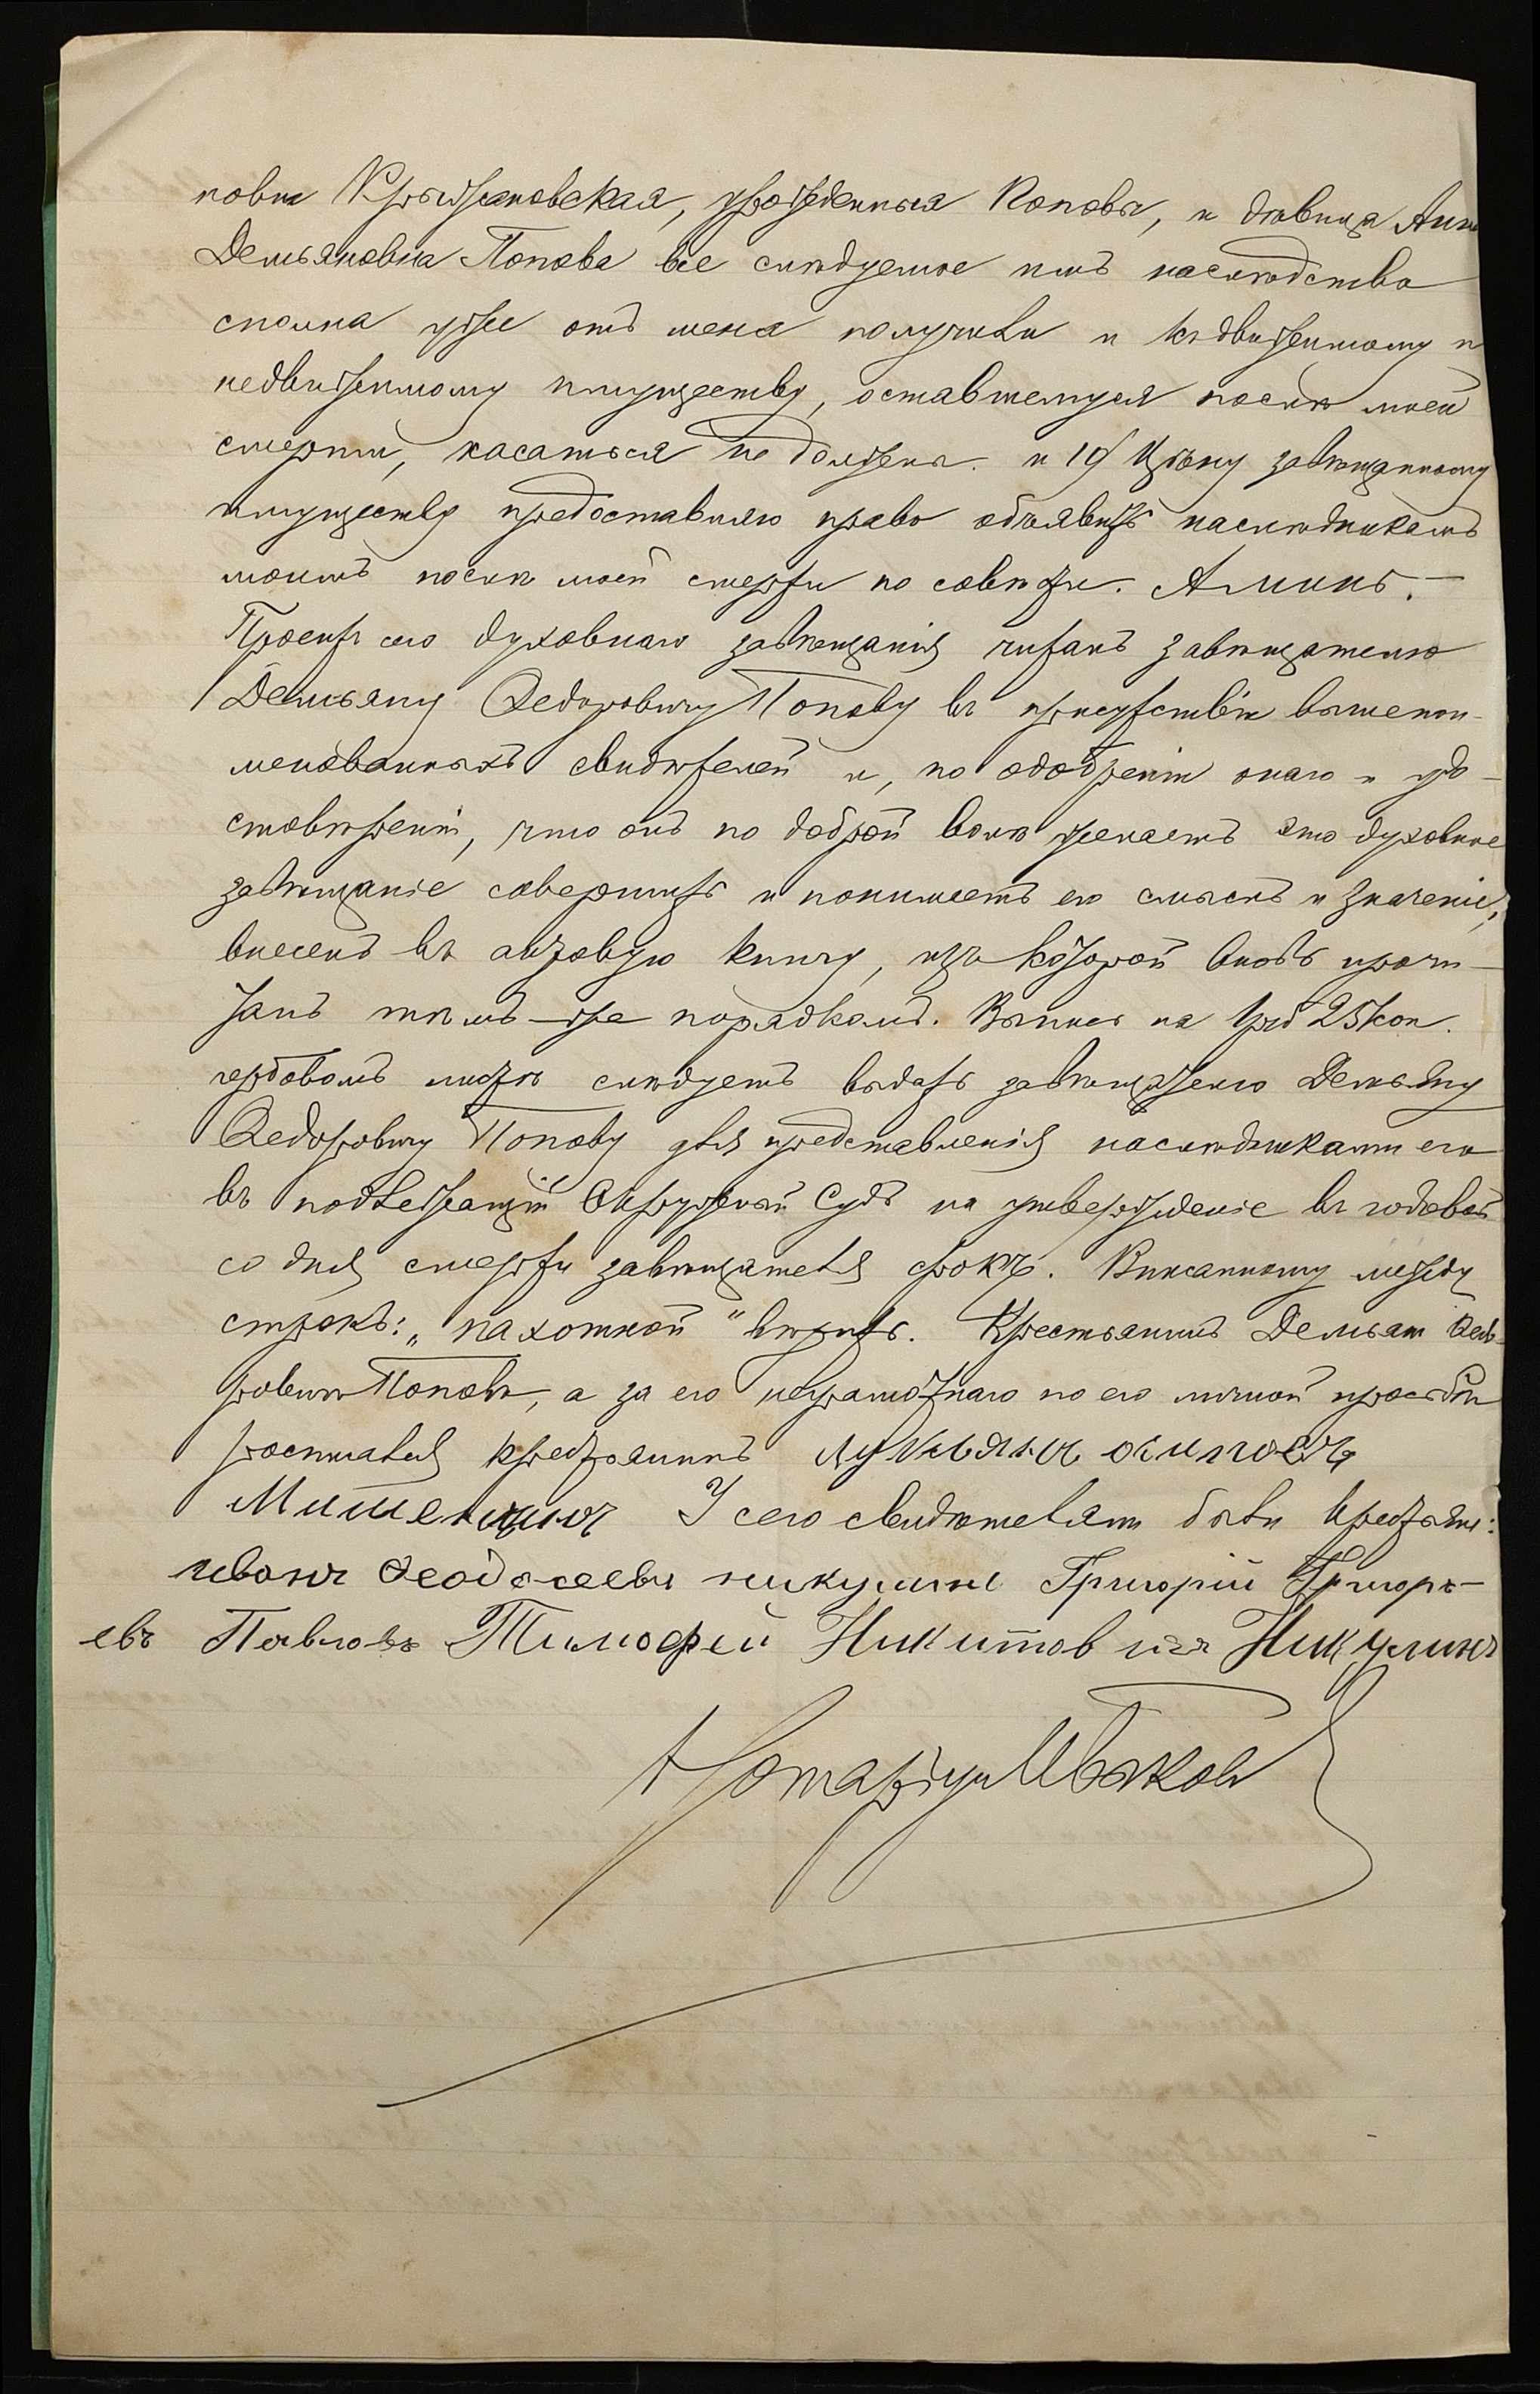 новна Крыжановская, урожденныя Поповы, и девица Анна
Демьяновна Попова все следуемое имъ наследство
сполна уже отъ меня получили и къ движимому и
недвижимому имуществу, оставшемуся после моей
смерти, касаться не должны. и 10/ Цѣну завѣщанному
имуществу предоставляю право объявить наслѣдникамъ
моимъ послѣ моей смерти по совѣсти. Аминь. —
Проектъ сего духовнаго завѣщанія читанъ завѣщателю
Демьяну Федоровичу Попову въ присутствіи вышепои-
менованныхъ свидѣтелей и, по одобреніи онаго и удо-
стовѣреніи, что онъ по доброй волѣ желаетъ это духовное
завѣщаніе совершить и понимаетъ его смыслъ и значеніе,
внесенъ въ актовую книгу, изъ которой вновь прочи-
танъ тѣмъ-же порядкомъ. Выпись на 1 руб 25 коп.
гербовомъ листѣ слѣдуетъ выдать завѣщателю Демьяну
Федоровичу Попову для представленія наслѣдниками его
въ подлежащій Окружный Судъ на утвержденіе въ годовой
со дня смерти завѣщателя срокъ. Вписанному между
строкъ: „пахотной" вѣрить. Крестьянинъ Демьянъ Федо-
ровичъ Поповъ, а за его неграмотнаго по его личной просьбѣ
росписался крестьянинъ Лукьянъ осиповъ
Мишенинъ У сего свидѣтелями были крестьяне:
иванъ Феодосеевъ никулинъ Григорій Григорь-
евъ Павловъ Тимофей Никитовичъ Никулинъ
Нотаріусъ